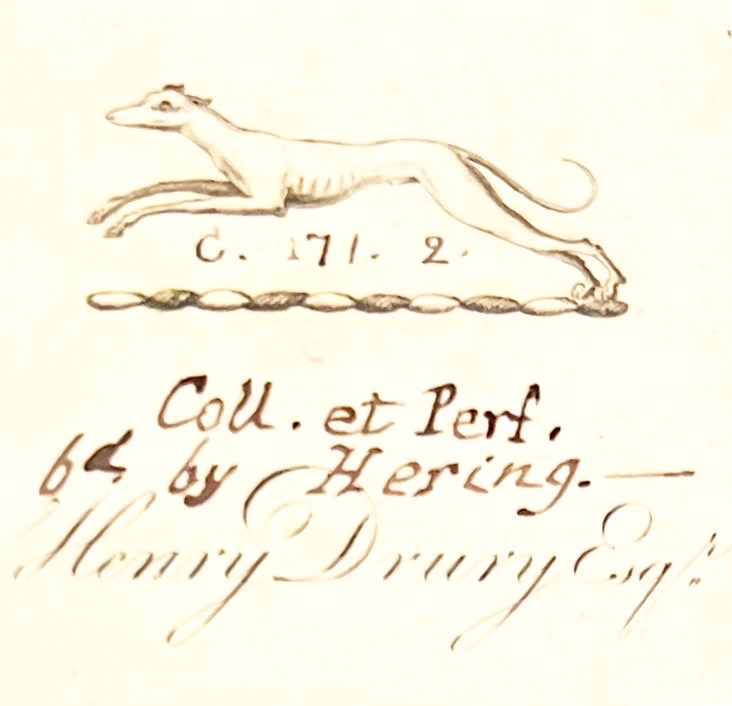 C. 171. 2.
Coll. et Perf.
bd by Hering.—
Henry Drury Esqr.